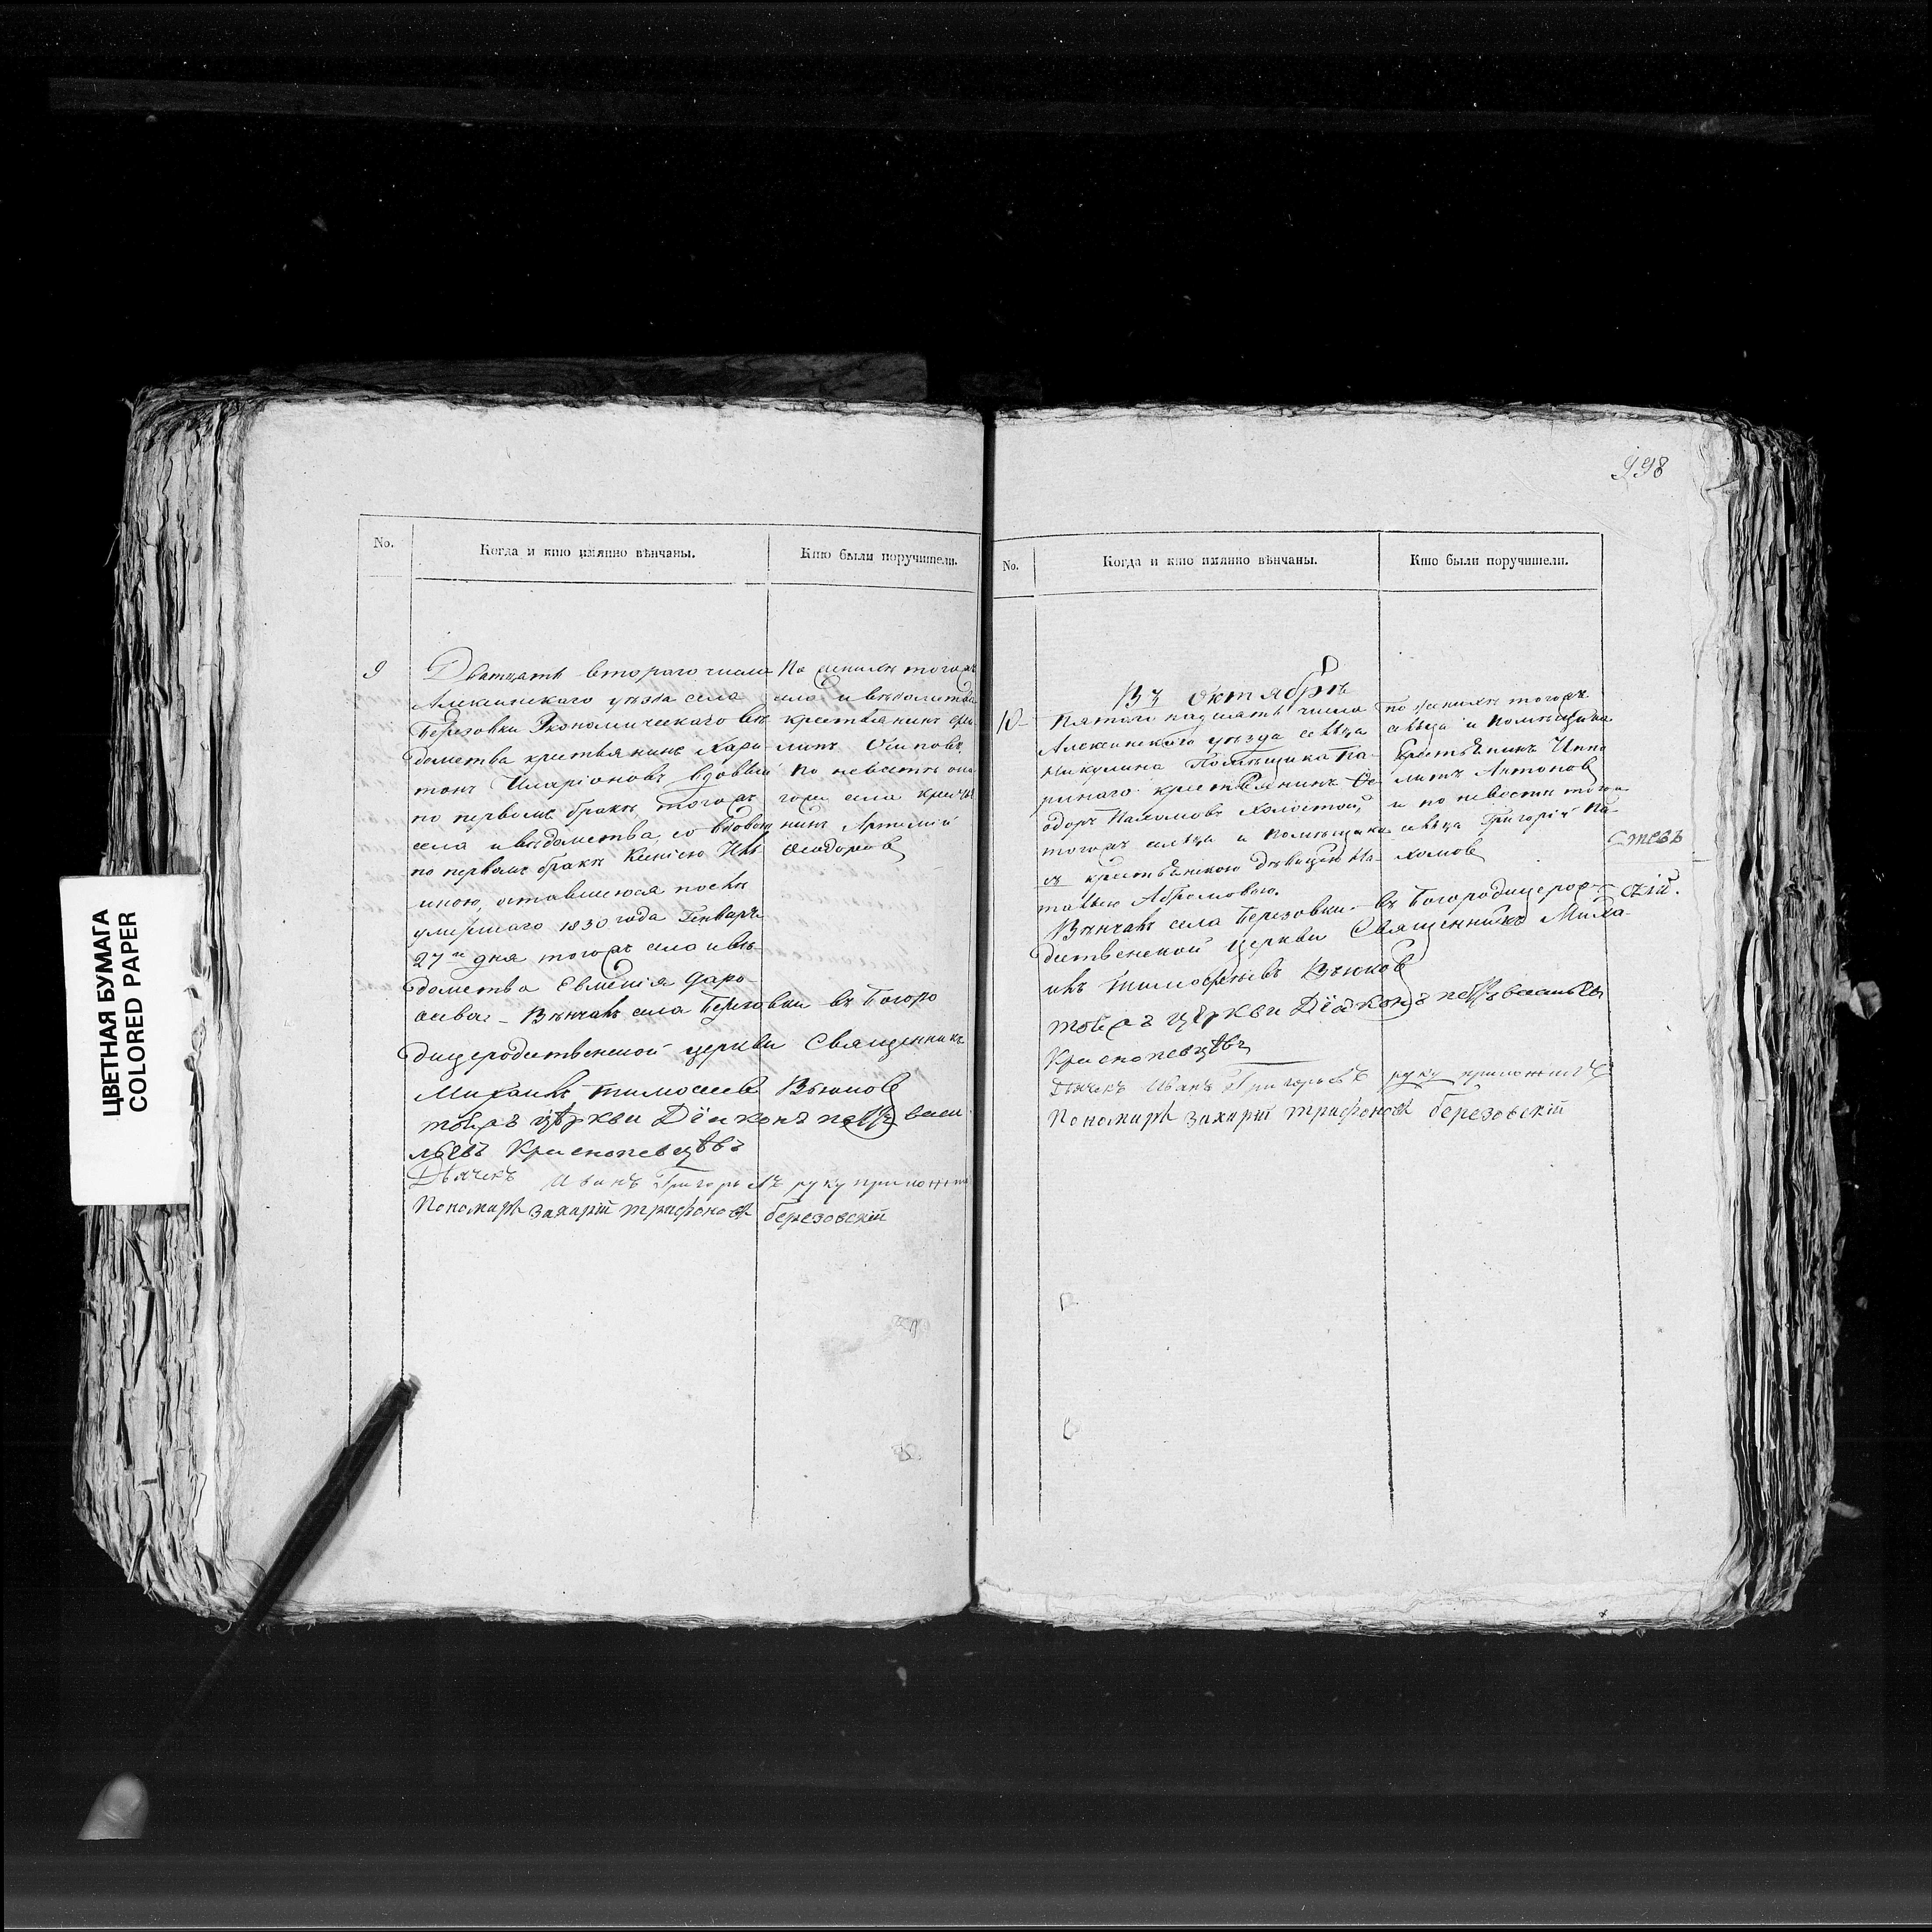 ЦВЕТНАЯ БУМАГА
COLORED PAPER
No.
Когда и кто имянно вѣнчаны.
Кто были поручители.
9
Дватцать втораго числа
Алексинскаго уѣзда села
Березовки Экономическаго вѣ
домства крестьянинъ Хари
тонъ Иларіоновъ вдовый
по первомъ бракѣ, тогожъ
села и вѣдомства со вдовою
по первомъ бракѣ Ксеніею
иною, оставшеюся послѣ
умершаго 1830 года Генваря
27 дня тогожъ села и вѣ
домства Евменія
Вѣнчалъ села Березовки въ Богоро
дицерождественской церкви Священникъ
Михаилъ Тимофеевъ Вьюковъ
тойжъ церкви Діаконъ петръ васи
льевъ Краснопевцевъ
Дьячекъ Иванъ Григорьевъ руку приложилъ
Пономарь Захарій трифоновъ березовскій
По женихѣ тогожъ
села и вѣдомства
крестьянинъ
Осиповъ
По невѣстѣ она
гожъ села крестья
нинъ Артемій
Ѳеодоровъ
998
No.
Когда и кто имянно вѣнчаны.
Кто были поручители.
Въ Октябрѣ
10
Пятаго надесять числа
Алексинскаго уѣзда сельца
Никулина Помѣщика
крестьянинъ Ѳе
одоръ Пахомовъ холостой,
тогожъ сельца и помѣщика
съ крестьянскою дѣвицею На
тальею Абрамовою.
Вѣнчалъ села Березовки въ Богородицерож
дественской церкви Священникъ Миха
илъ Тимофеевъ Вьюковъ
тойжъ церкви Діаконъ петръ васильевъ
Краснопевцевъ
Дьячекъ Иванъ Григорьевъ руку приложилъ
Пономарь Захарій трифоновъ березовскій
по женихѣ тогожъ
сельца и помѣщика
крестьянинъ Иппо
литъ Антоновъ
и по невѣстѣ тогожъ
сельца Григорій Па
хомовъ